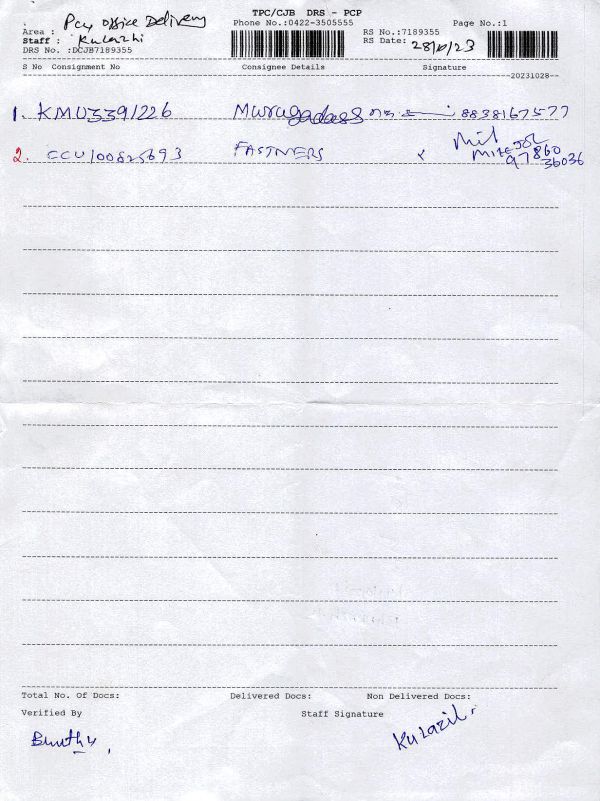 TPC/CJB DRS - PCP
Pcy office Delivery
Area :
Phone No.:0422-3505555
Page No.:1
Staff : Kulazhi
RS No.:7189355
RS Date: 28/10/23
DRS No. :DCJB7189355
S No Consignment No Consignee Details Signature
20231028
1. KMU3391226 Murugadass 8838167577
2. CCU100825693 FASTNERS x
97860
36036
Total No. Of Docs: Delivered Docs: Non Delivered Docs:
Verified By Staff Signature